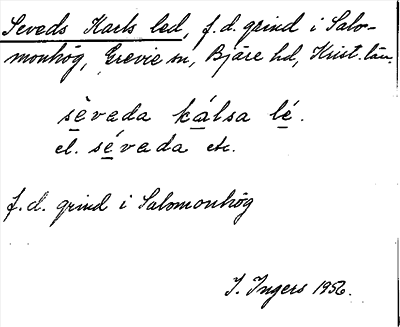 Seveds Karls led, f.d. grind i Salo-
monhög, Grevie sn, Bjäre hd, Krist. län.
sèvada kálsa lé.
el. sévada etc.
f.d. grind i Salomonhög
I. Ingers 1956.